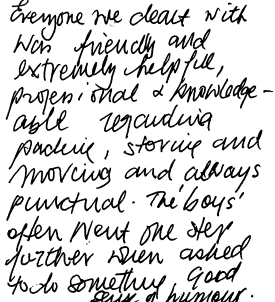 Everyone we dealt with
was friendly and
extremely helpful,
professional & knowledge-
able regarding
packing, storing and
moving and always
punctual. The 'boys'
often went one step
further when asked
to do something good
sense of humour.